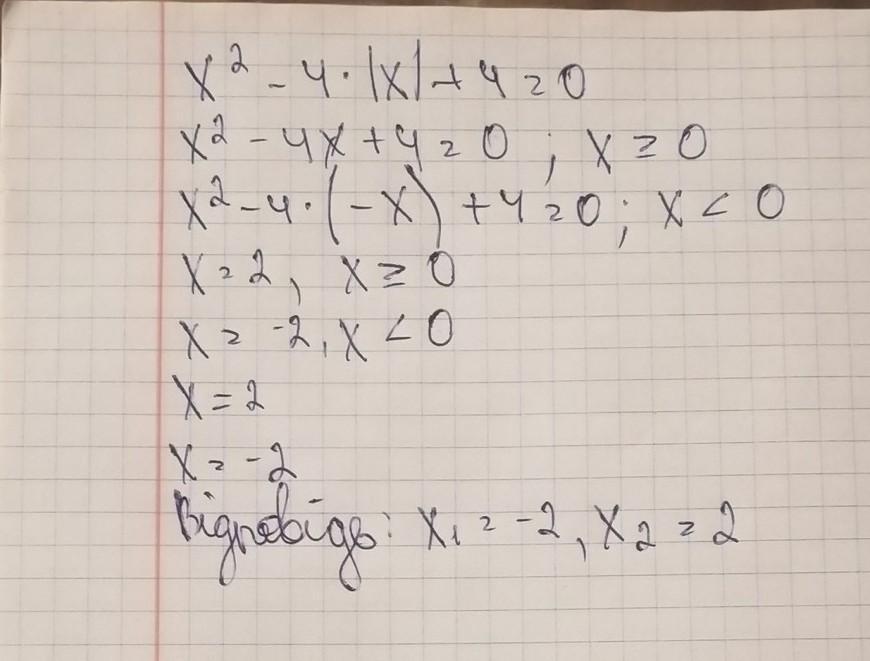 x² - 4·|x| + 4 = 0
x² - 4x + 4 = 0 ; x ≥ 0
x² - 4·(-x) + 4 = 0 ; x < 0
x = 2, x ≥ 0
x = -2, x < 0
x = 2
x = -2
Відповідь: x₁ = -2, x₂ = 2